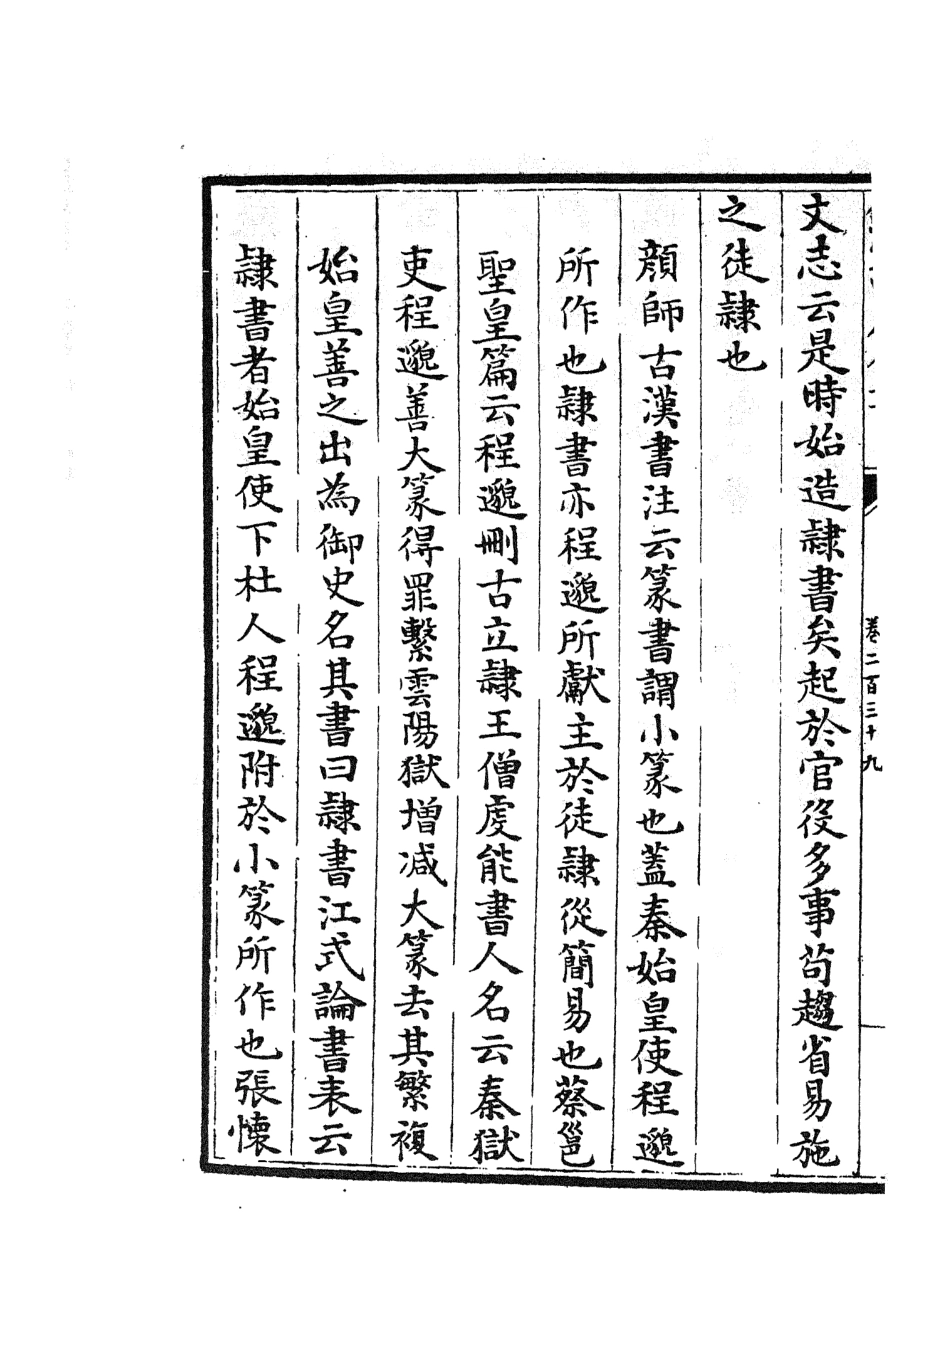 卷二百三十九
文志云是時始造隷書矣起於官役多事苟趨省易施
之徒隷也
顔師古漢書注云篆書謂小篆也蓋秦始皇使程邈
所作也隷書亦程邈所獻主於徒隷從簡易也蔡邕
聖皇篇云程邈刪古立隷王僧虔能書人名云秦獄
吏程邈善大篆得罪繫雲陽獄增减大篆去其繁複
始皇善之出為御史名其書曰隷書江式論書表云
隷書者始皇使下杜人程邈附於小篆所作也張懷